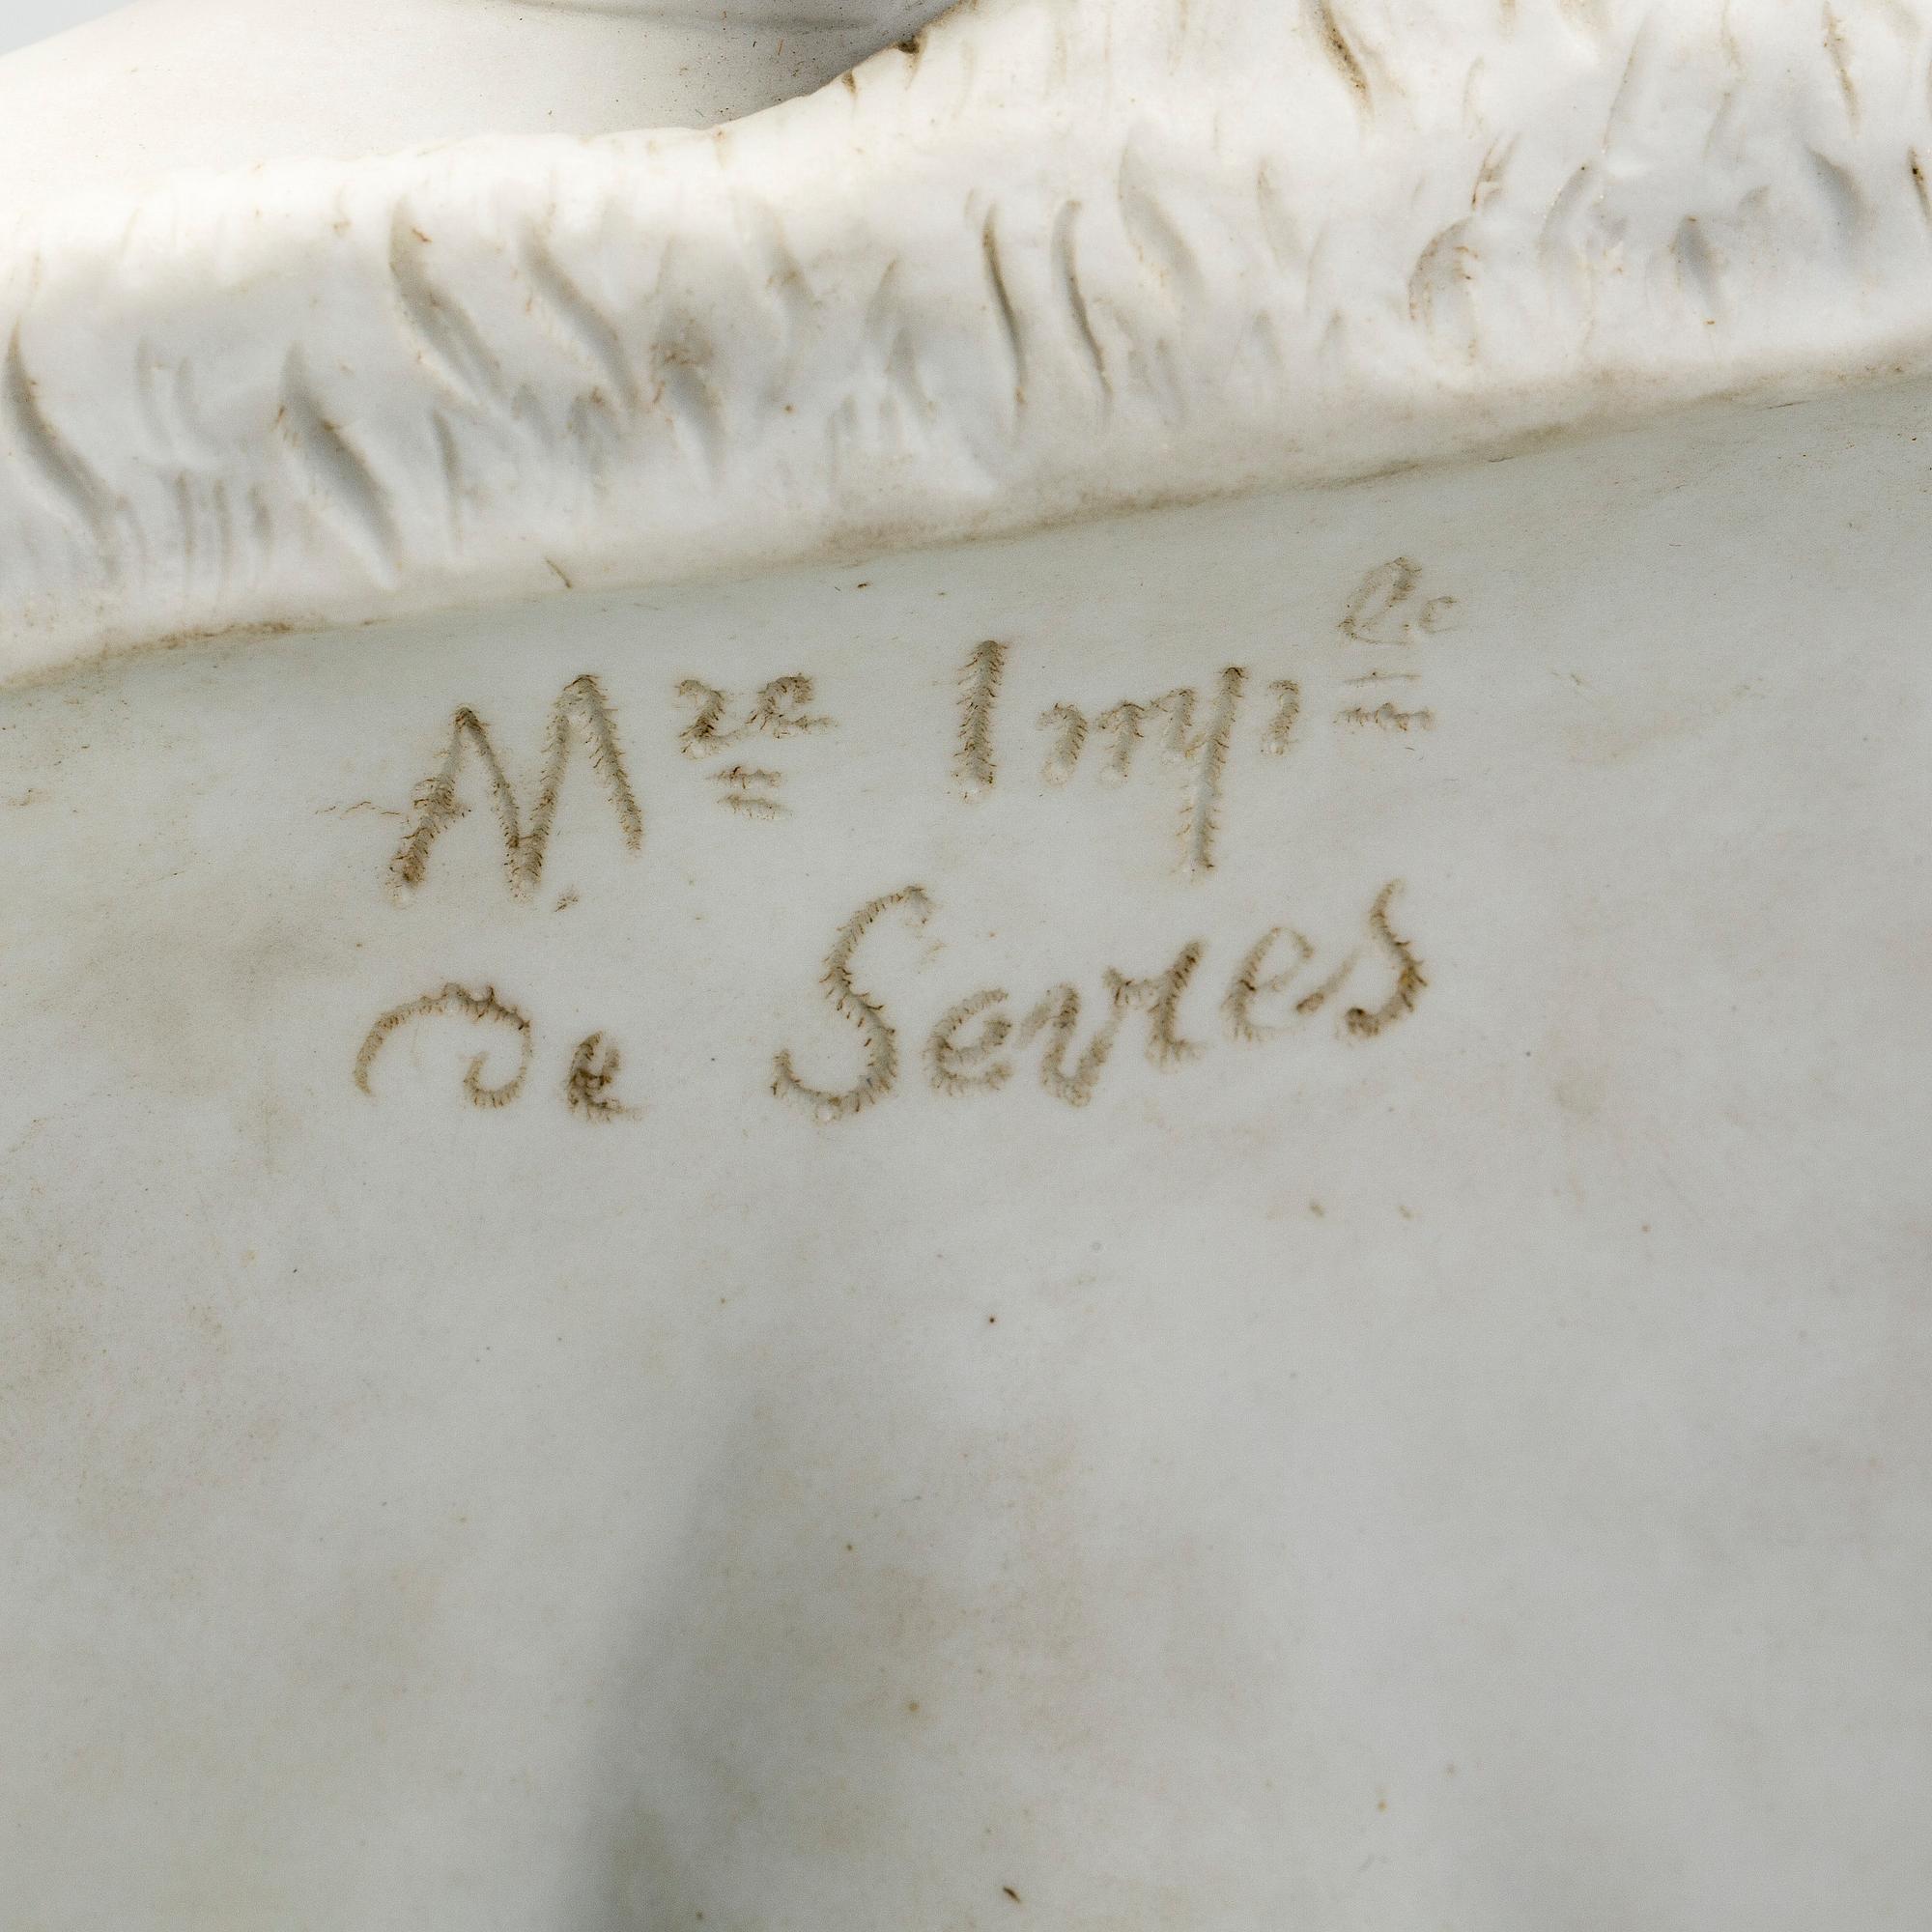 Mre Imple
de Sevres